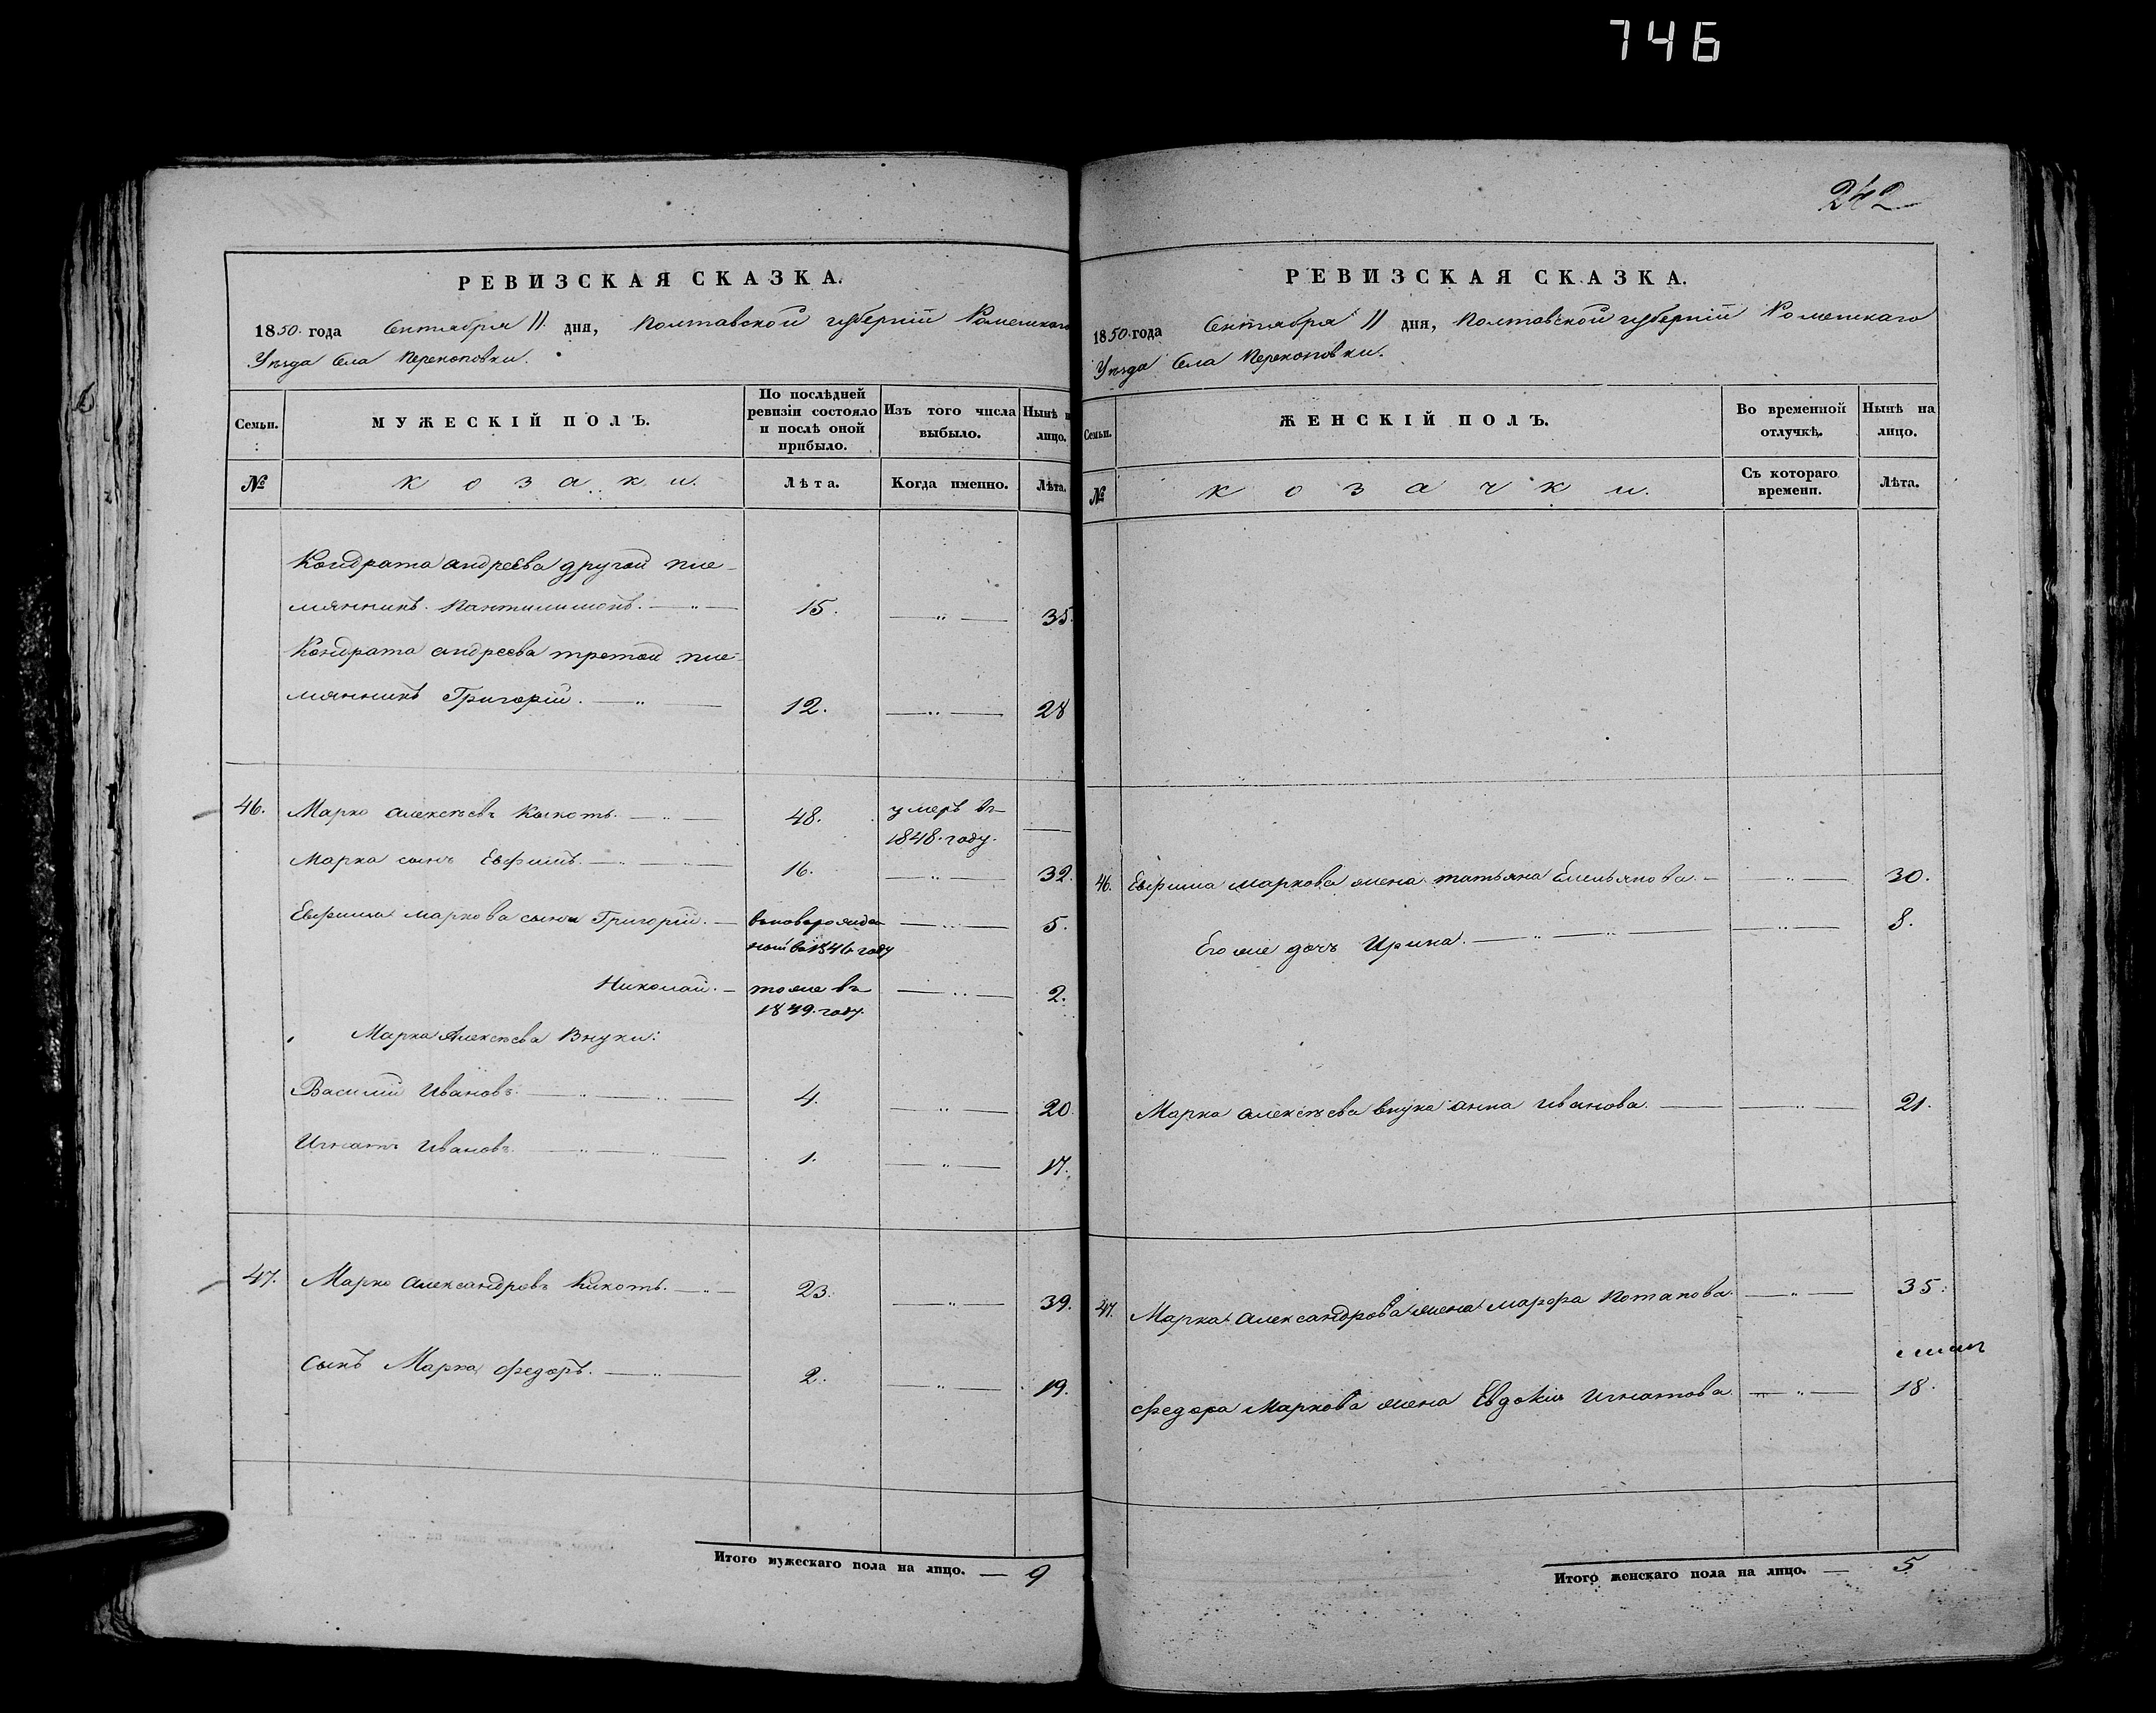 746
242
РЕВИЗСКАЯ СКАЗКА.
1850 года Сентября 11 дня, Полтавской губерніи Роменскаго
Уѣзда Села Перекоповки.
Семьи. МУЖЕСКІЙ ПОЛЪ. По послѣдней ревизіи состояло и послѣ оной прибыло. Изъ того числа выбыло. Нынѣ н лицо.
№ козаки. Лѣта. Когда именно. Лѣта.
Кондрата андреева другой пле-
мянникъ Пантилимонъ. 15. 35.
Кондрата андреева третой пле-
мянникъ Григорій. 12. 28
46. Марко алексѣевъ Кикоть. 48. умеръ въ
1848. году.
Марка сынъ Евфимъ. 16. 32.
Евфима маркова сыны Григорій. вновьрожден 5.
ный въ 1846 году
Николай. тоже въ 2.
1849. году.
Марка Алексѣева Внуки:
Василій Ивановъ. 4. 20.
Игнатъ Ивановъ. 1. 17.
47. Марко александровъ Кикоть. 23. 39.
Сынъ Марка федоръ. 2. 19.
Итого мужескаго пола на лицо. 9
РЕВИЗСКАЯ СКАЗКА.
1850 года Сентября 11 дня, Полтавской губерніи Роменскаго
Уѣзда Села Перекоповки.
Семьи. ЖЕНСКІЙ ПОЛЪ. Во временной отлучкѣ. Нынѣ на лицо.
№ козачки. Съ котораго времени. Лѣта.
46. Евфима маркова жена татьяна Емельянова. 30.
Его же дочь Ирина. 8.
Марка алексѣева внука анна иванова. 21.
47. Марка александрова жена марфа Потапова. 35.
федора маркова жена Евдокия Игнатова. 18.
Итого женскаго пола на лицо. 5